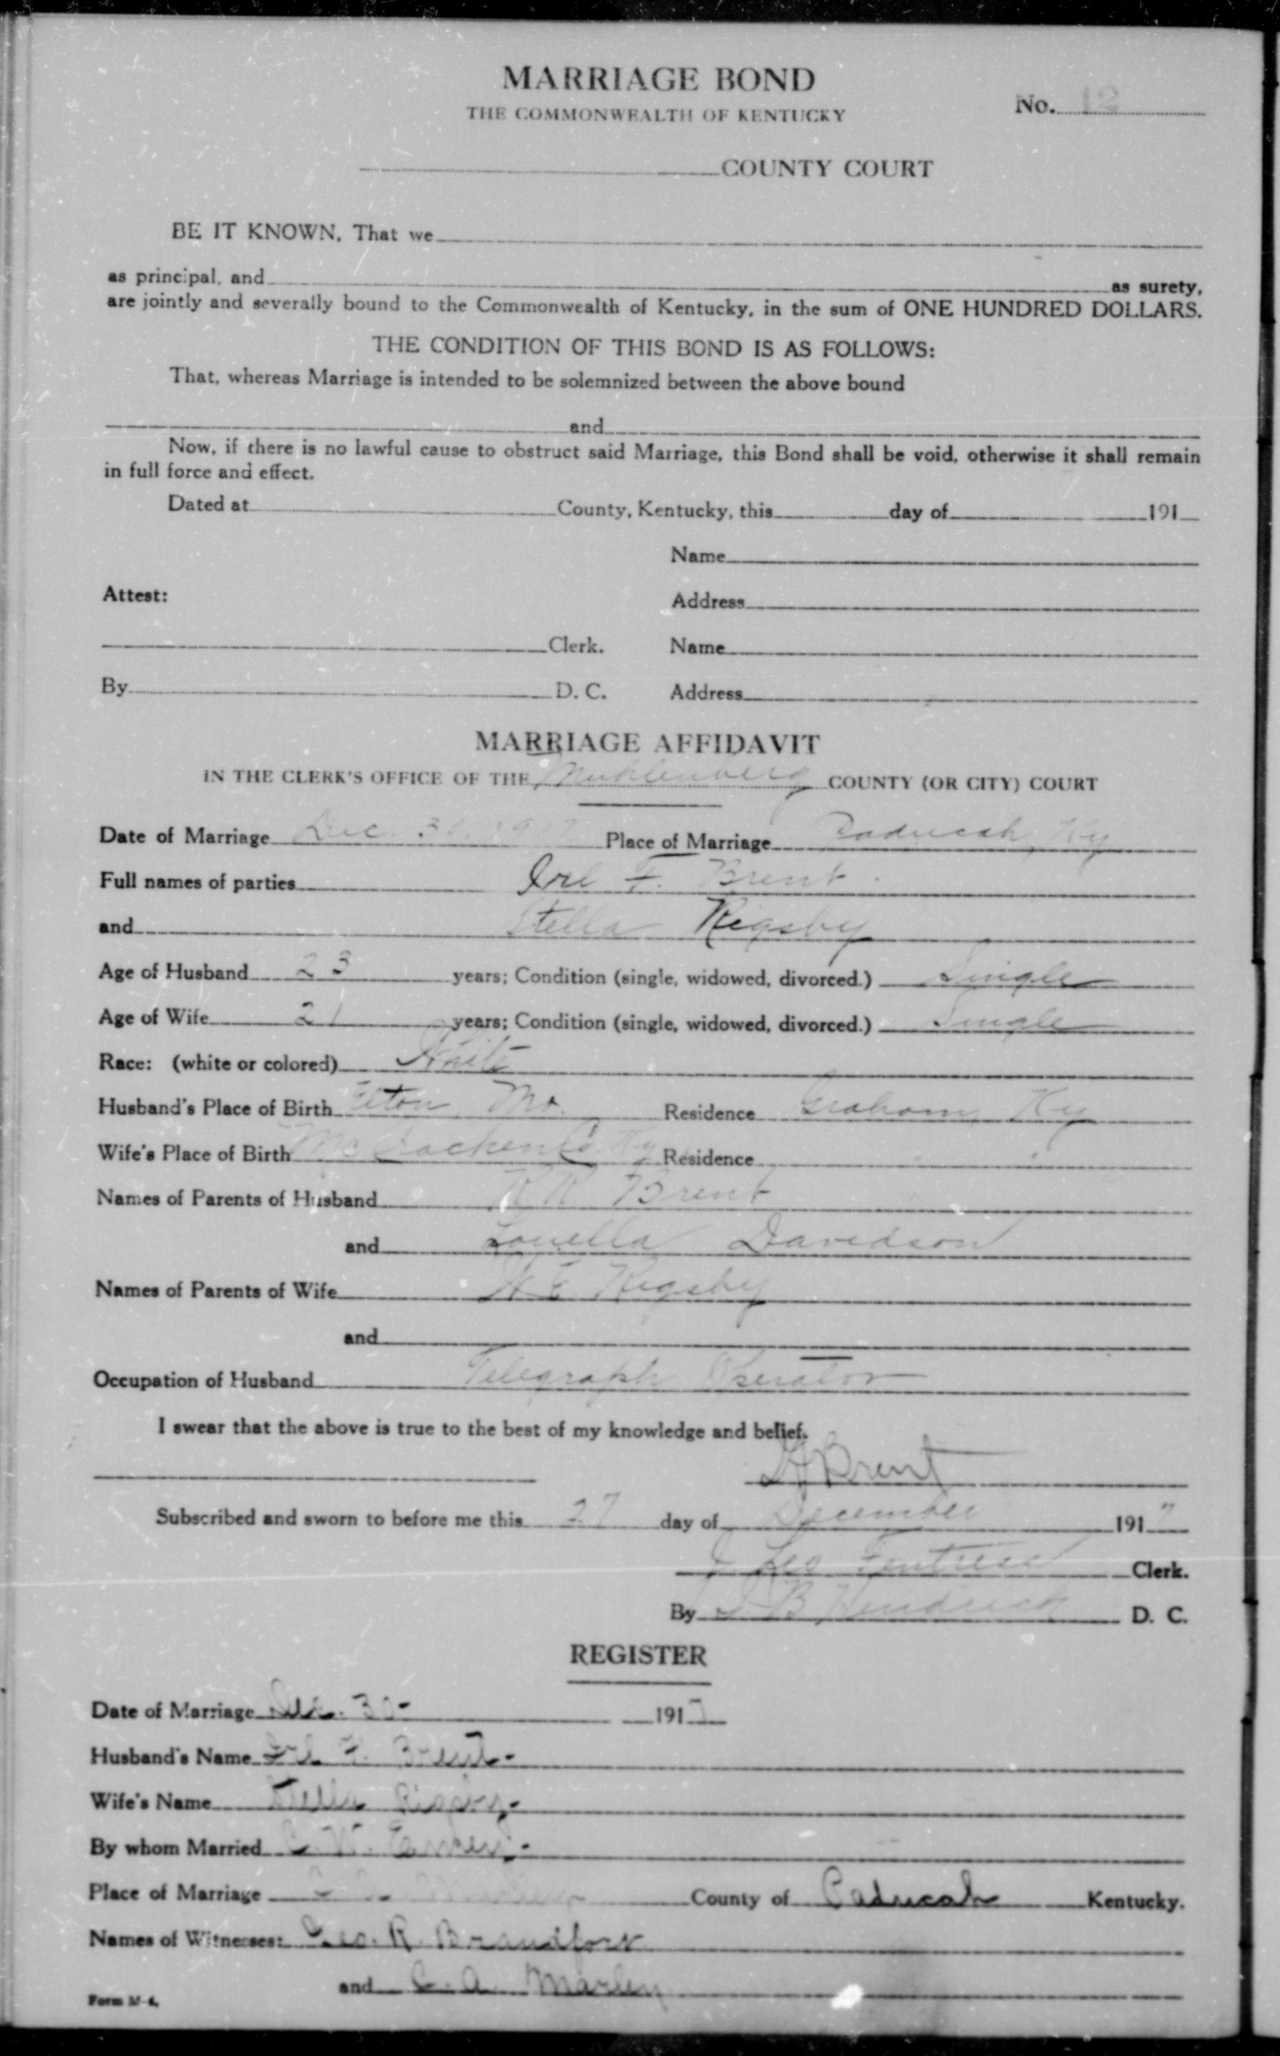 MARRIAGE BOND
THE COMMONWEALTH OF KENTUCKY
No. 12
COUNTY COURT
BE IT KNOWN, That we
as principal, and as surety,
are jointly and severally bound to the Commonwealth of Kentucky, in the sum of ONE HUNDRED DOLLARS.
THE CONDITION OF THIS BOND IS AS FOLLOWS:
That, whereas Marriage is intended to be solemnized between the above bound
and
Now, if there is no lawful cause to obstruct said Marriage, this Bond shall be void, otherwise it shall remain
in full force and effect.
Dated at County, Kentucky, this day of 191
Name
Attest: Address
Clerk. Name
By D. C. Address
MARRIAGE AFFIDAVIT
IN THE CLERK'S OFFICE OF THE Muhlenberg COUNTY (OR CITY) COURT
Date of Marriage Dec. 30 1917 Place of Marriage Paducah, Ky
Full names of parties Irl F. Brent
and Stella Rigsby
Age of Husband 23 years; Condition (single, widowed, divorced.) Single
Age of Wife 21 years; Condition (single, widowed, divorced.) Single
Race: (white or colored) White
Husband's Place of Birth Mo. Residence Graham, Ky
Wife's Place of Birth McCracken Co Ky Residence
Names of Parents of Husband Brent
and Louella Davidson
Names of Parents of Wife Rigsby
and
Occupation of Husband Telegraph Operator
I swear that the above is true to the best of my knowledge and belief.
Brent
Subscribed and sworn to before me this 27 day of December 1917
Leo Fentress Clerk.
By Hendrick D. C.
REGISTER
Date of Marriage Dec. 30- 1917
Husband's Name Irl F. Brent-
Wife's Name Stella Rigsby-
By whom Married C. W.
Place of Marriage County of Paducah Kentucky.
Names of Witnesses: Geo. R.
and C. A. Marley
Form M-4.